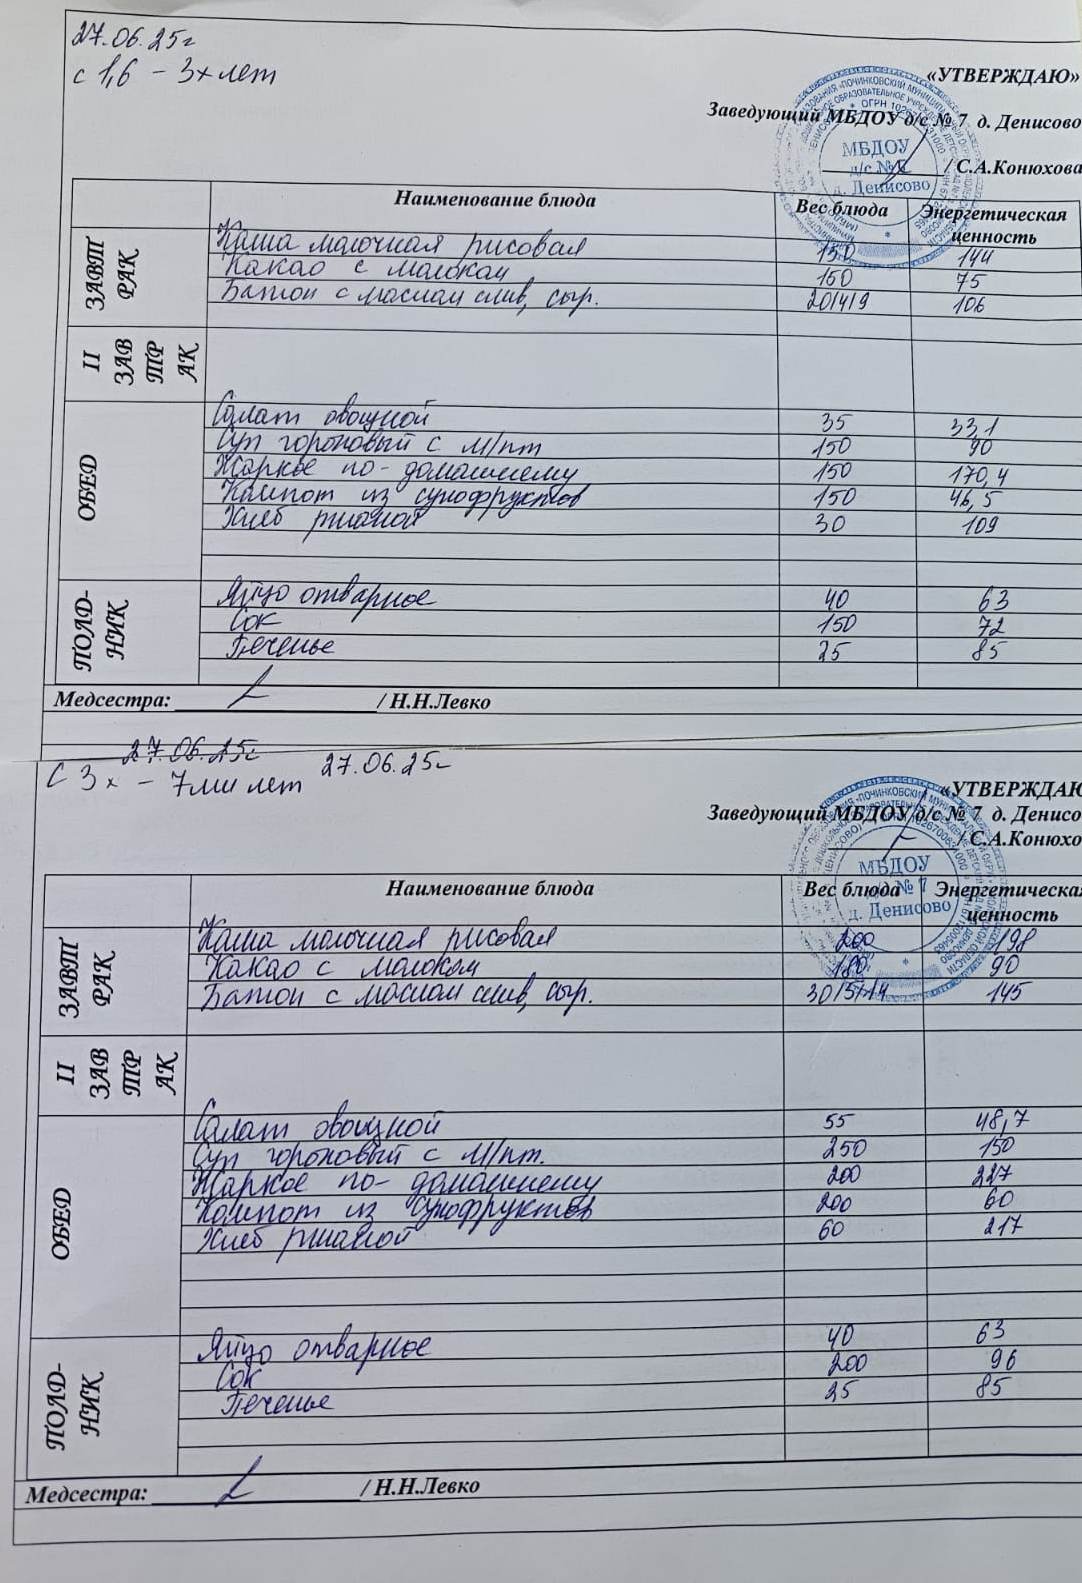 27.06.25г
с 1,6 - 3х лет
«УТВЕРЖДАЮ»
Заведующий МБДОУ д/с № 7 д. Денисово
/ С.А.Конюхова
МБДОУ
д/с № 7
д. Денисово
Наименование блюда Вес блюда Энергетическая ценность
ЗАВТРАК
Каша молочная рисовая 150 144
Какао с молоком 150 75
Батон с маслом слив, сыр. 20/4/9 106
II ЗАВТРАК
ОБЕД
Салат овощной 35 33,1
Суп гороховый с м/пт 150 90
Жаркое по-домашнему 150 170,4
Компот из сухофруктов 150 46,5
Хлеб ржаной 30 109
ПОЛД-НИК
Яйцо отварное 40 63
Сок 150 72
Печенье 25 85
Медсестра: / Н.Н.Левко
27.06.25г
с 3х - 7ми лет 27.06.25г
«УТВЕРЖДАЮ
Заведующий МБДОУ д/с № 7 д. Денисо
/ С.А.Конюхо
МБДОУ
д/с № 7
д. Денисово
Наименование блюда Вес блюда Энергетическая ценность
ЗАВТРАК
Каша молочная рисовая 200 198
Какао с молоком 180 90
Батон с маслом слив, сыр. 30/5/14 145
II ЗАВТРАК
ОБЕД
Салат овощной 55 48,7
Суп гороховый с м/пт. 250 150
Жаркое по-домашнему 200 227
Компот из сухофруктов 200 60
Хлеб ржаной 60 217
ПОЛД-НИК
Яйцо отварное 40 63
Сок 200 96
Печенье 25 85
Медсестра: / Н.Н.Левко